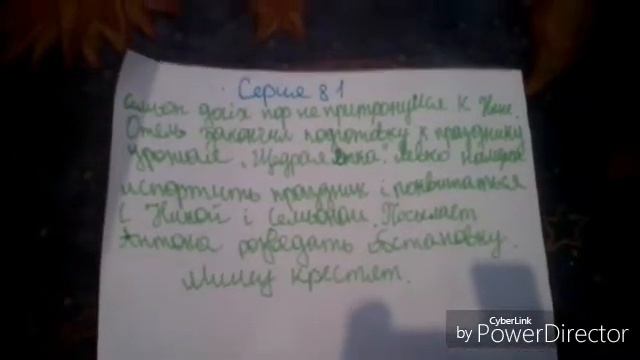 Серия 81
Семьон до сіх пор не притронулся к Нине.
Отель закончил подготовку к празднику
урожая „Щедрая
испортить праздник і поквитаться
с Никой і Семьоном. Посылает
Антона розведать обстановку.
Мишу крестят.
CyberLink
by PowerDirector